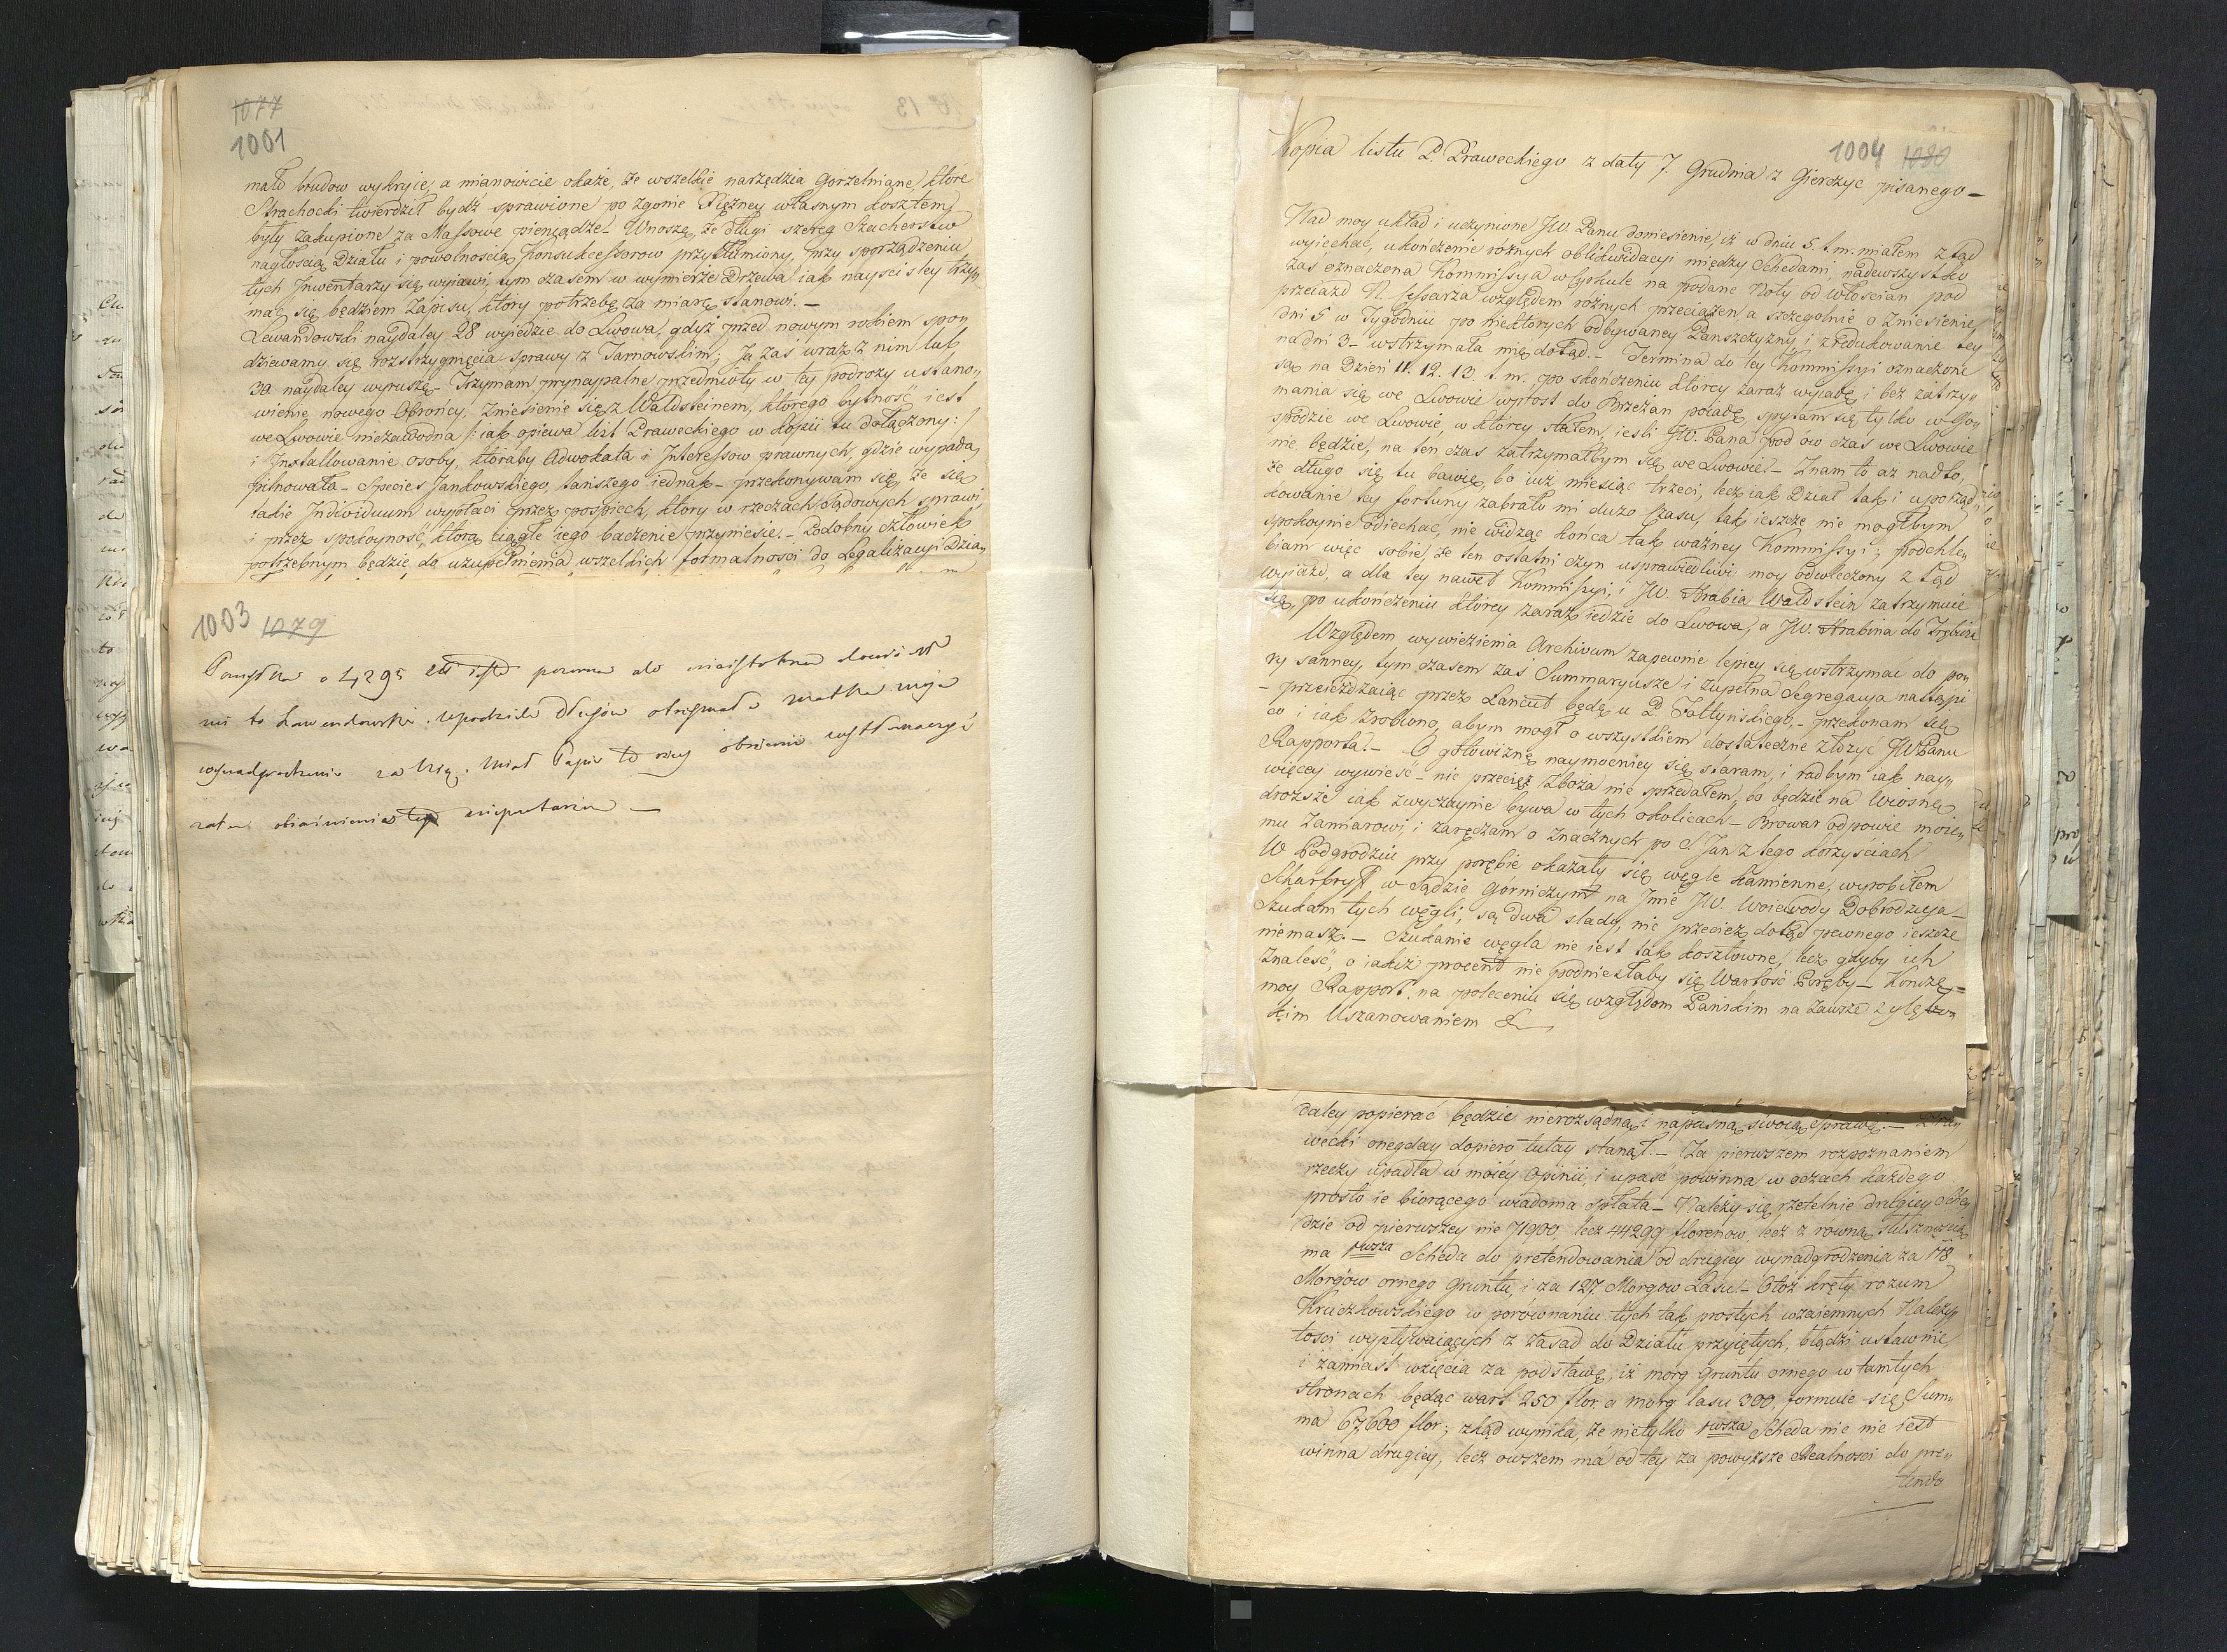 1077
1001
mało brudow wykryie, a mianowicie okaże, że wszelkie narzędzia gorzelniane, które
Strachocki twierdził bydź sprawione po zgonie Xiężney własnym kosztem,
były zakupione za Massowe pieniądze. Wnoszę, że długi szereg Szacherstw
nagłością Działu i powolnością Konsukcessorow przytłumiony, przy sporządzeniu
tych Inwentarzy się wyiawi, tym czasem w wymierze Drzewa iak nayściśley trzy„
mać się będziem Zapisu, który potrzebę za miarę stanowi. —
Lewandowski naydaley 28 wyiedzie do Lwowa, gdyż przed nowym rokiem spo„
dziewamy się rozstrzygnięcia sprawy z Tarnowskim; Ja zaś wraz z nim lub
30 naydaley wyruszę. Trzymam pryncypalne przedmioty w tey podroży ustano„
wienie nowego Obrońcy, Zniesienie się z Waldsteinem, którego bytność iest
we Lwowie niezawodna /: iak opiewa list Praweckiego w kopii tu dołączony :/
i Installowanie osoby, któraby Adwokata i Interessow prawnych, gdzie wypada,
pilnowała — Species Jankowskiego, tańszego iednak — przekonywam się, że się
takie Individuum wypłaci przez pospiech, który w rzeczach sądowych sprawi,
i przez spokoyność, którą ciągłe iego baczenie przyniesie. — Podobny człowiek
potrzebnym będzie do uzupełnienia wszelkich formalności do Legalizacyi Dzia„
1003 1079
to Lewandowski
1004 1080
Kopia listu P. Praweckiego z daty 7. Grudnia z Gierczyc pisanego —
Nad moy układ i uczynione JW. Panu doniesienie, iż w dniu 5. t. m. miałem ztąd
wyiechać, ukończenie różnych oblikwidacyi między Schedami, nadewszystko
zaś oznaczona Kommissya w Cyrkule na podane Noty od Włościan pod
przeiazd N. Cessarza względem rożnych przeciążeń a szczegolnie o Zniesienie
dni 5 w Tygodniu po niektórych odbywaney Pańszczyzny, i zredukowanie tey
na dni 3 — wstrzymała mię dotąd. — Termina do tey Kommissyi oznaczone
są na Dzień 11. 12. 13. t. m. po skończeniu którey zaraz wyiadę, i bez zatrzy„
mania się we Lwowie wprost do Brzeżan poiadę, spytam się tylko w Gos„
podzie we Lwowie, w którey stałem, ieśli JW. Pana pod ow czas we Lwowie
nie będzie, na ten czas zatrzymałbym się we Lwowie. — Znam to aż nadto,
że długo się tu bawię, bo iuż miesiąc trzeci, lecz iak Dział tak i uporząd„
kowanie tey fortuny zabrało mi dużo czasu, tak ieszcze nie mogłbym
spokoynie odiechać, nie widząc końca tak ważney Kommissyi; podchle„
biam więc sobie, że ten ostatni czyn usprawiedliwi moy odwleczony ztąd
wyiazd, a dla tey nawet Kommissyi, i JW. Hrabia Waldstein zatrzymuie
się, po ukończeniu którey zaraz iedzie do Lwowa, a JW. Hrabina do
Względem wywiezienia Archivum zapewnie lepiey się wstrzymać do po„
ry sanney, tym czasem zaś Summaryusze i zupełna Segregacya nastąpi
— przeieżdżaiąc przez Łańcut będę u P. Fałtyńskiego, — przekonam się
co i iak zrobiono, abym mogł o wszystkiem dostateczne złożyć JWPanu
Rapporta. — O gotowiznę naymocniey się staram, i radbym iak nay„
więcey wywieść — nic przecież Zboża nie sprzedałem, bo będzie na Wiosnę
droższe iak zwyczaynie bywa w tych okolicach — Browar odpowie moie„
mu Zamiarowi, i zaręczam o znacznych po S. Jan z tego korzyściach
W Podgrodziu przy porębie okazały się węgle kamienne, wyrobiłem
w Sądzie Górniczym na Imie JW. Woiewody Dobrodzieja —
Szukam tych węgli, są dwa slady, nic przecież dotąd pewnego ieszcze
niemasz. — Szukanie węgla nie iest tak kosztowne, lecz gdyby ich
Znaleść, o iakiż procent nie podniosłaby się Wartość Poręby — Kończę
moy Rapport, na poleceniu się względom Pańskim na zawsze z głębo„
kim Uszanowaniem &
daley popierać będzie nierozsądną i napasną swoią sprawę. — Pra„
wecki onegday dopiero tutay stanął. — Za pierwszem rozpoznaniem
rzeczy upadła w moiey Opinii, i upaść powinna w oczach każdego
prosto ie biorącego wiadoma spłata — Należy się rzetelnie drugiey Sche„
dzie od pierwszey nie 71900, lecz 44299 florenow, lecz z rowną słusznością
ma 1wsza Scheda do pretendowania od drugiey wynadgrodzenia za 118
Morgów ornego gruntu, i za 127 Morgow Lasu. — Otoż kręty rozum
Kruczkowskiego w porównaniu tych tak prostych wzaiemnych Należy„
tości wypływaiących z zasad do Działu przyiętych, błądzi ustawnie,
i zamiast wzięcia za podstawę, iż morg gruntu ornego w tamtych
stronach będąc wart 250 flor. a morg lasu 300, formuie się Sum„
ma 67,600 flor; zkąd wynika, że nietylko 1wsza Scheda nic nie iest
winna drugiey, lecz owszem ma od tey za powyższe Realności do pre„
tendo